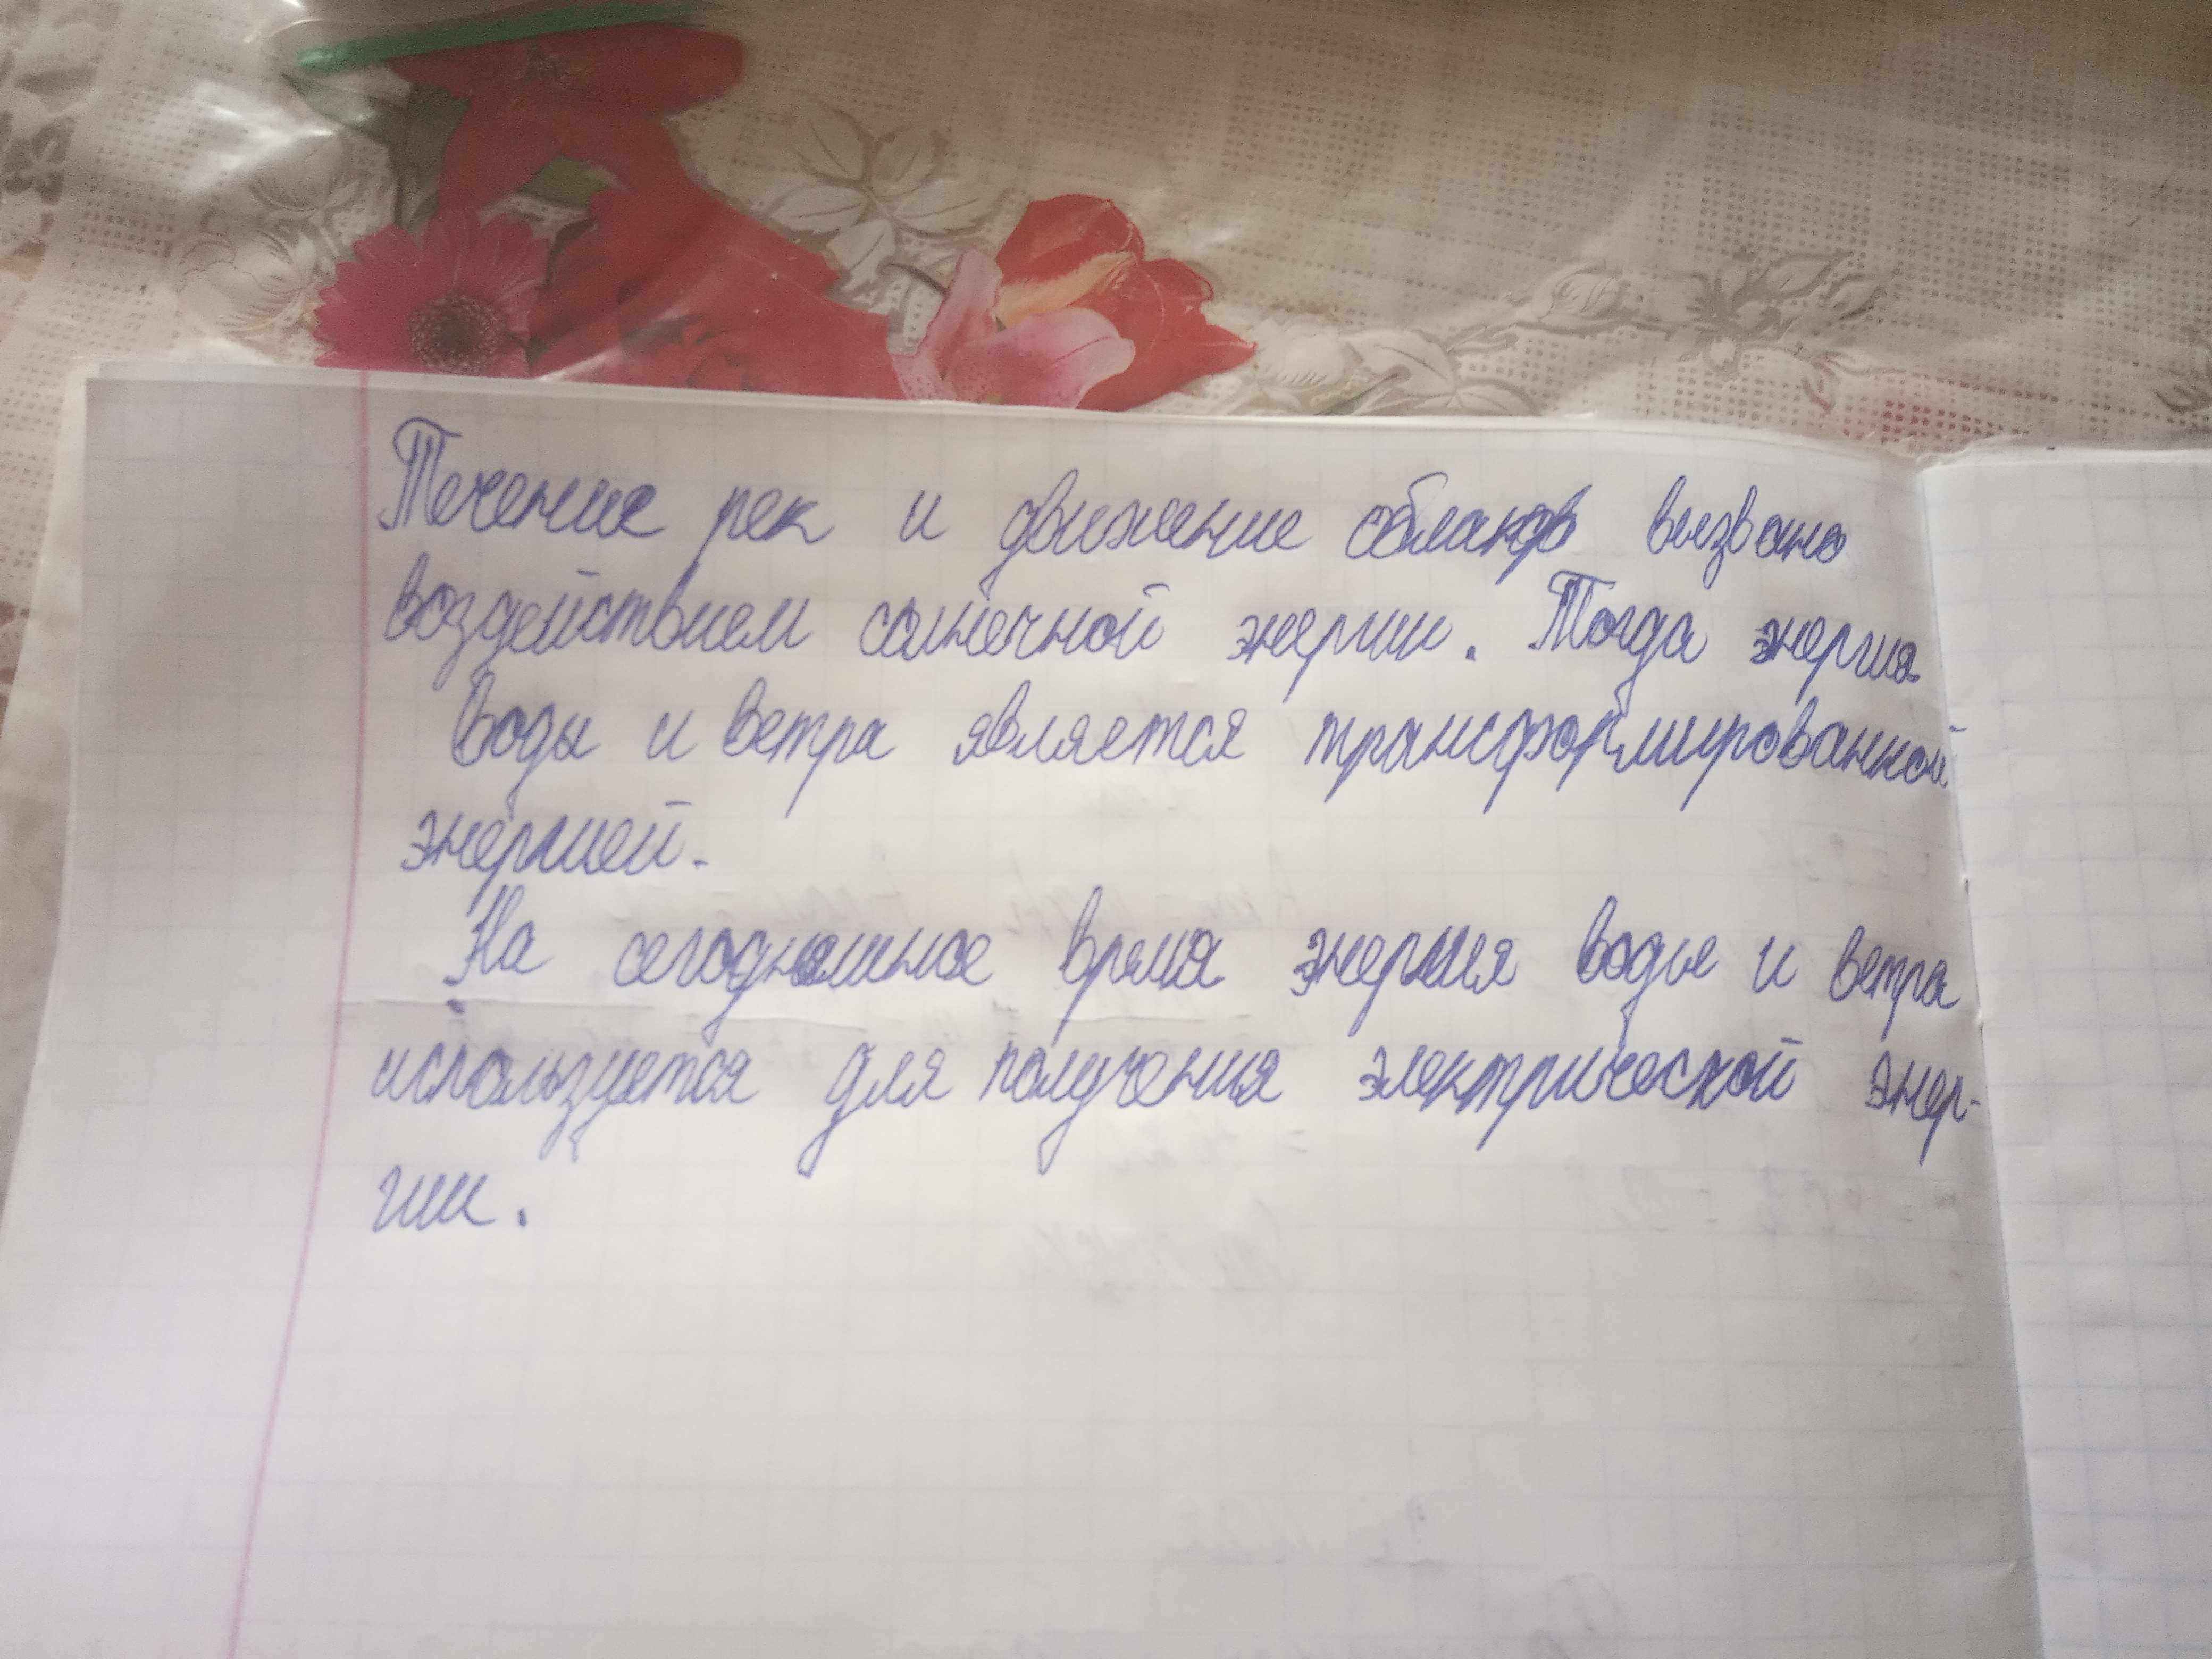 Течение рек и движение облаков вызвано
воздействием солнечной энергии. Тогда энергия
воды и ветра является трансформированной
энергией.
На сегодняшнее время энергия воды и ветра
используется для получения электрической энер-
гии.